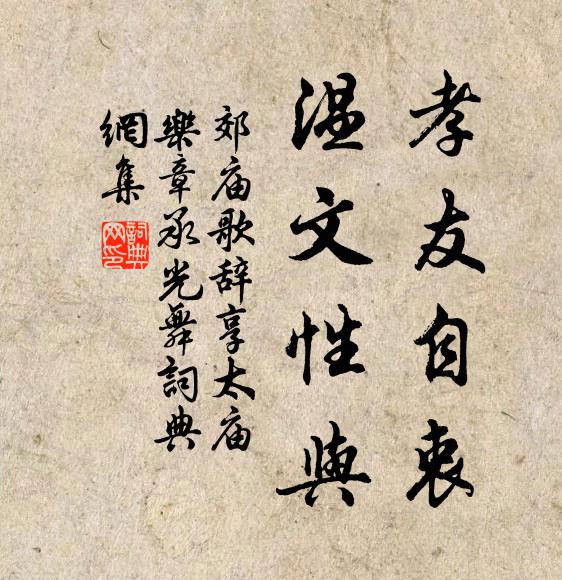 孝友自衷
温文性與
郊庙歌辞享太庙
樂章承光舞詞典
網集
詞典网印